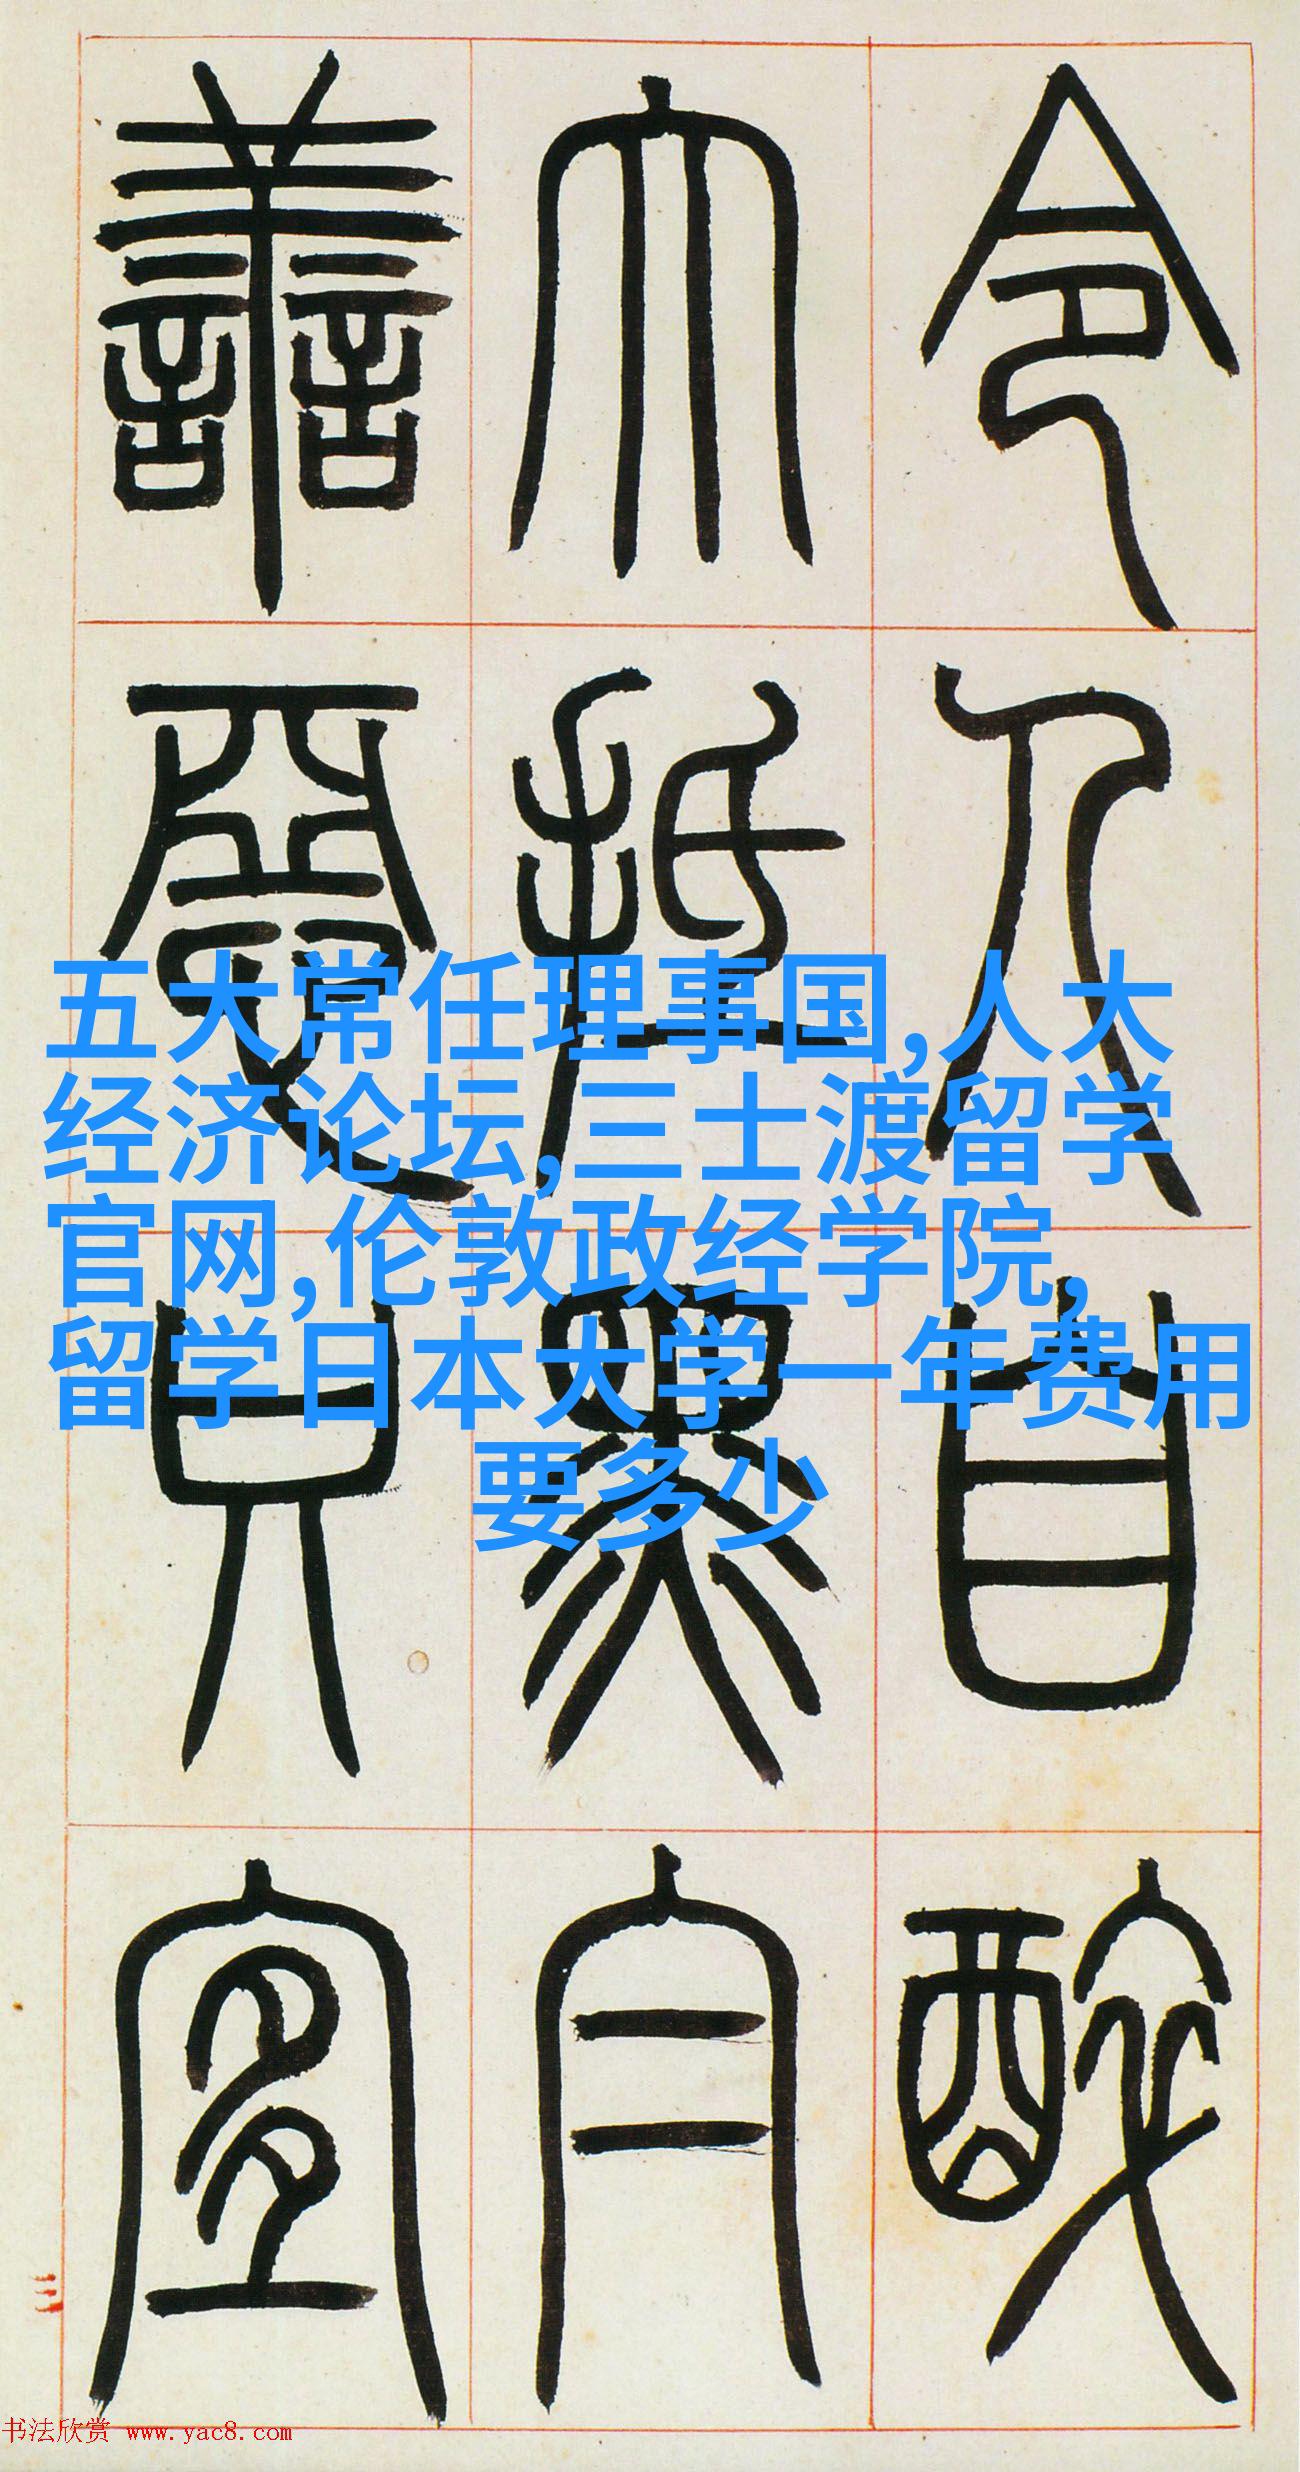 令人自醉
大抵無穴
善處只宜
五大常任理事国,人大
经济论坛,三士渡留学
官网,伦敦政经学院,
留学日本大学一年费用
要多少
三
书法欣赏 www.yac8.com